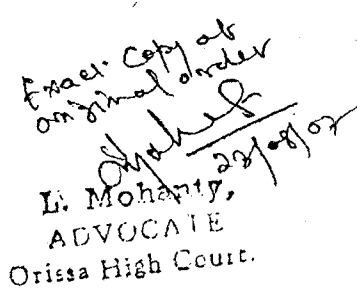 Exact Copy of
original order
23/08/07
L. Mohanty,
ADVOCATE
Orissa High Court.